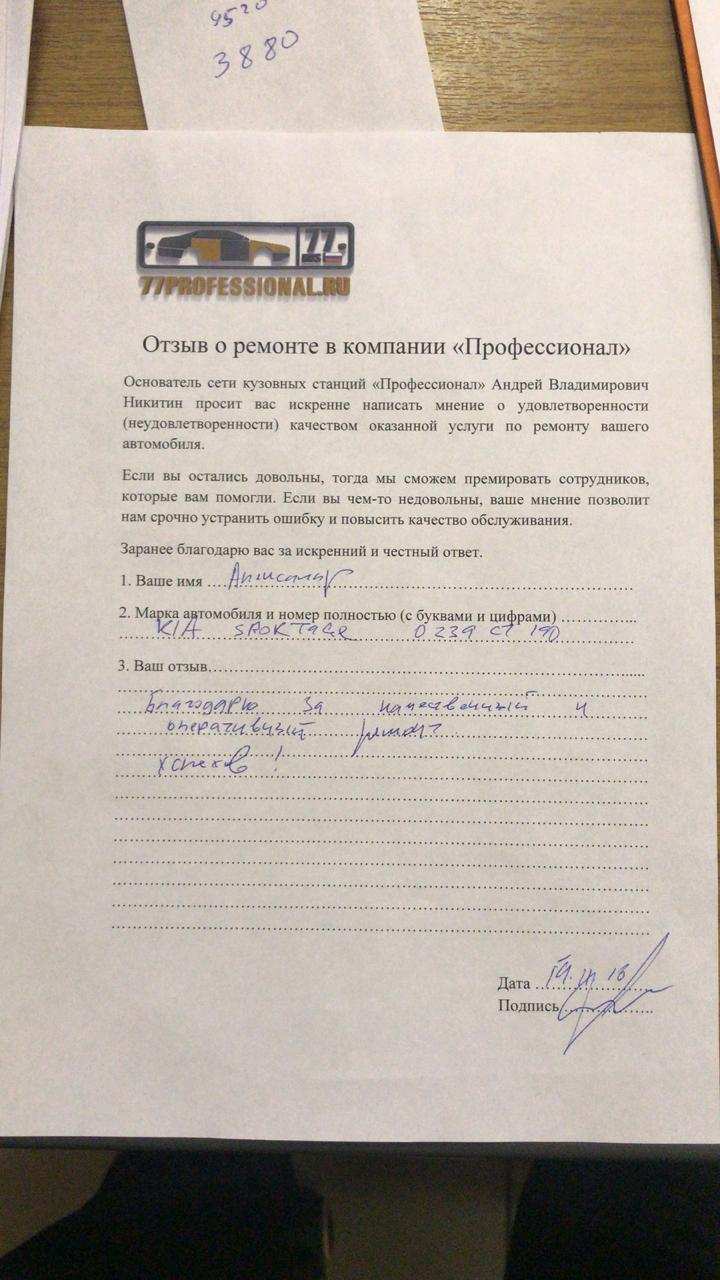 9520
3880
77
77PROFESSIONAL.RU
Отзыв о ремонте в компании «Профессионал»
Основатель сети кузовных станций «Профессионал» Андрей Владимирович
Никитин просит вас искренне написать мнение о удовлетворенности
(неудовлетворенности) качеством оказанной услуги по ремонту вашего
автомобиля.
Если вы остались довольны, тогда мы сможем премировать сотрудников,
которые вам помогли. Если вы чем-то недовольны, ваше мнение позволит
нам срочно устранить ошибку и повысить качество обслуживания.
Заранее благодарю вас за искренний и честный ответ.
1. Ваше имя Александр
2. Марка автомобиля и номер полностью (с буквами и цифрами)
KIA О 239 СТ 190
3. Ваш отзыв
Благодарю за качественный и
оперативный ремонт
успехов!
Дата
Подпись